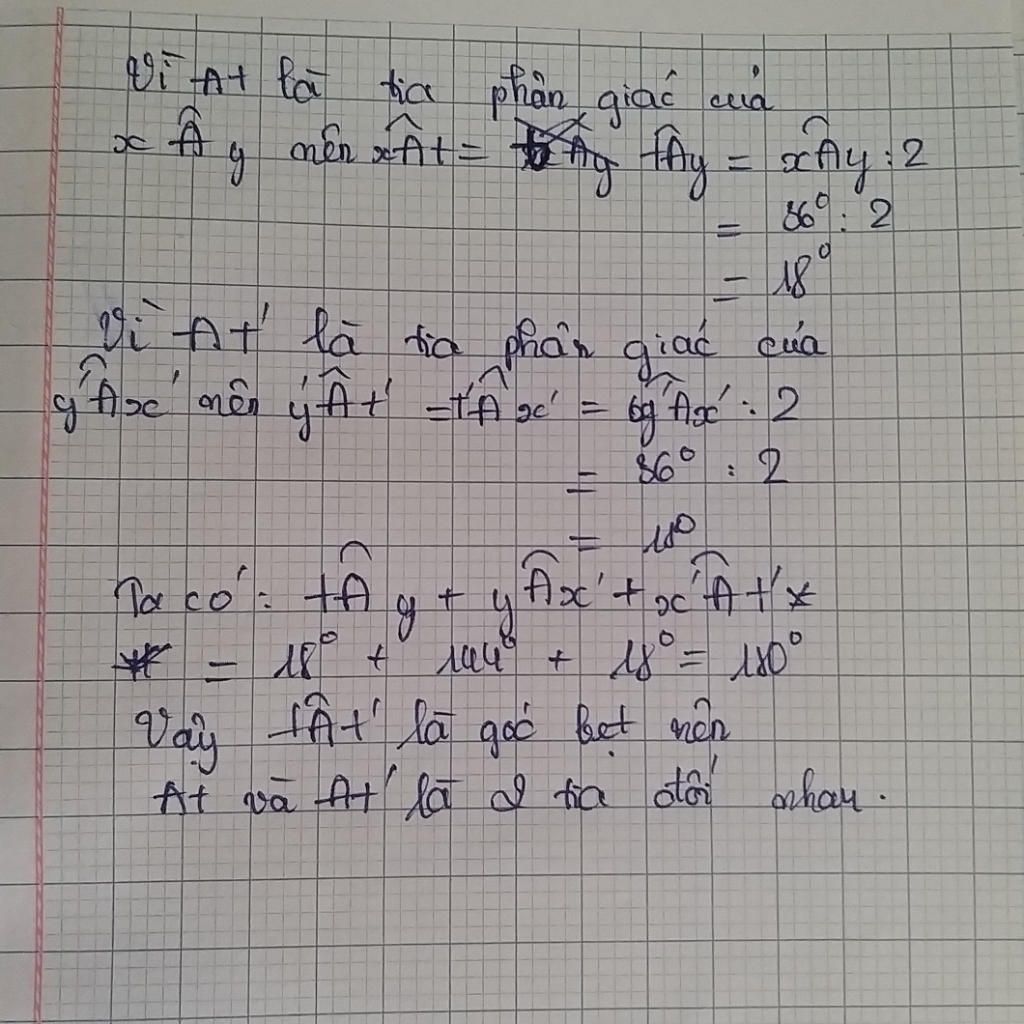 Vì At là tia phân giác của
xÂy nên xÂt = tÂy = xÂy : 2
= 36° : 2
= 18°
Vì At' là tia phân giác của
y'Âx' nên y'Ât' = t'Âx' = y'Âx' : 2
= 36° : 2
= 18°
Ta có: tÂy + yÂx' + x'Ât'
= 18° + 144° + 18° = 180°
Vậy tÂt' là góc bẹt nên
At và At' là 2 tia đối nhau.